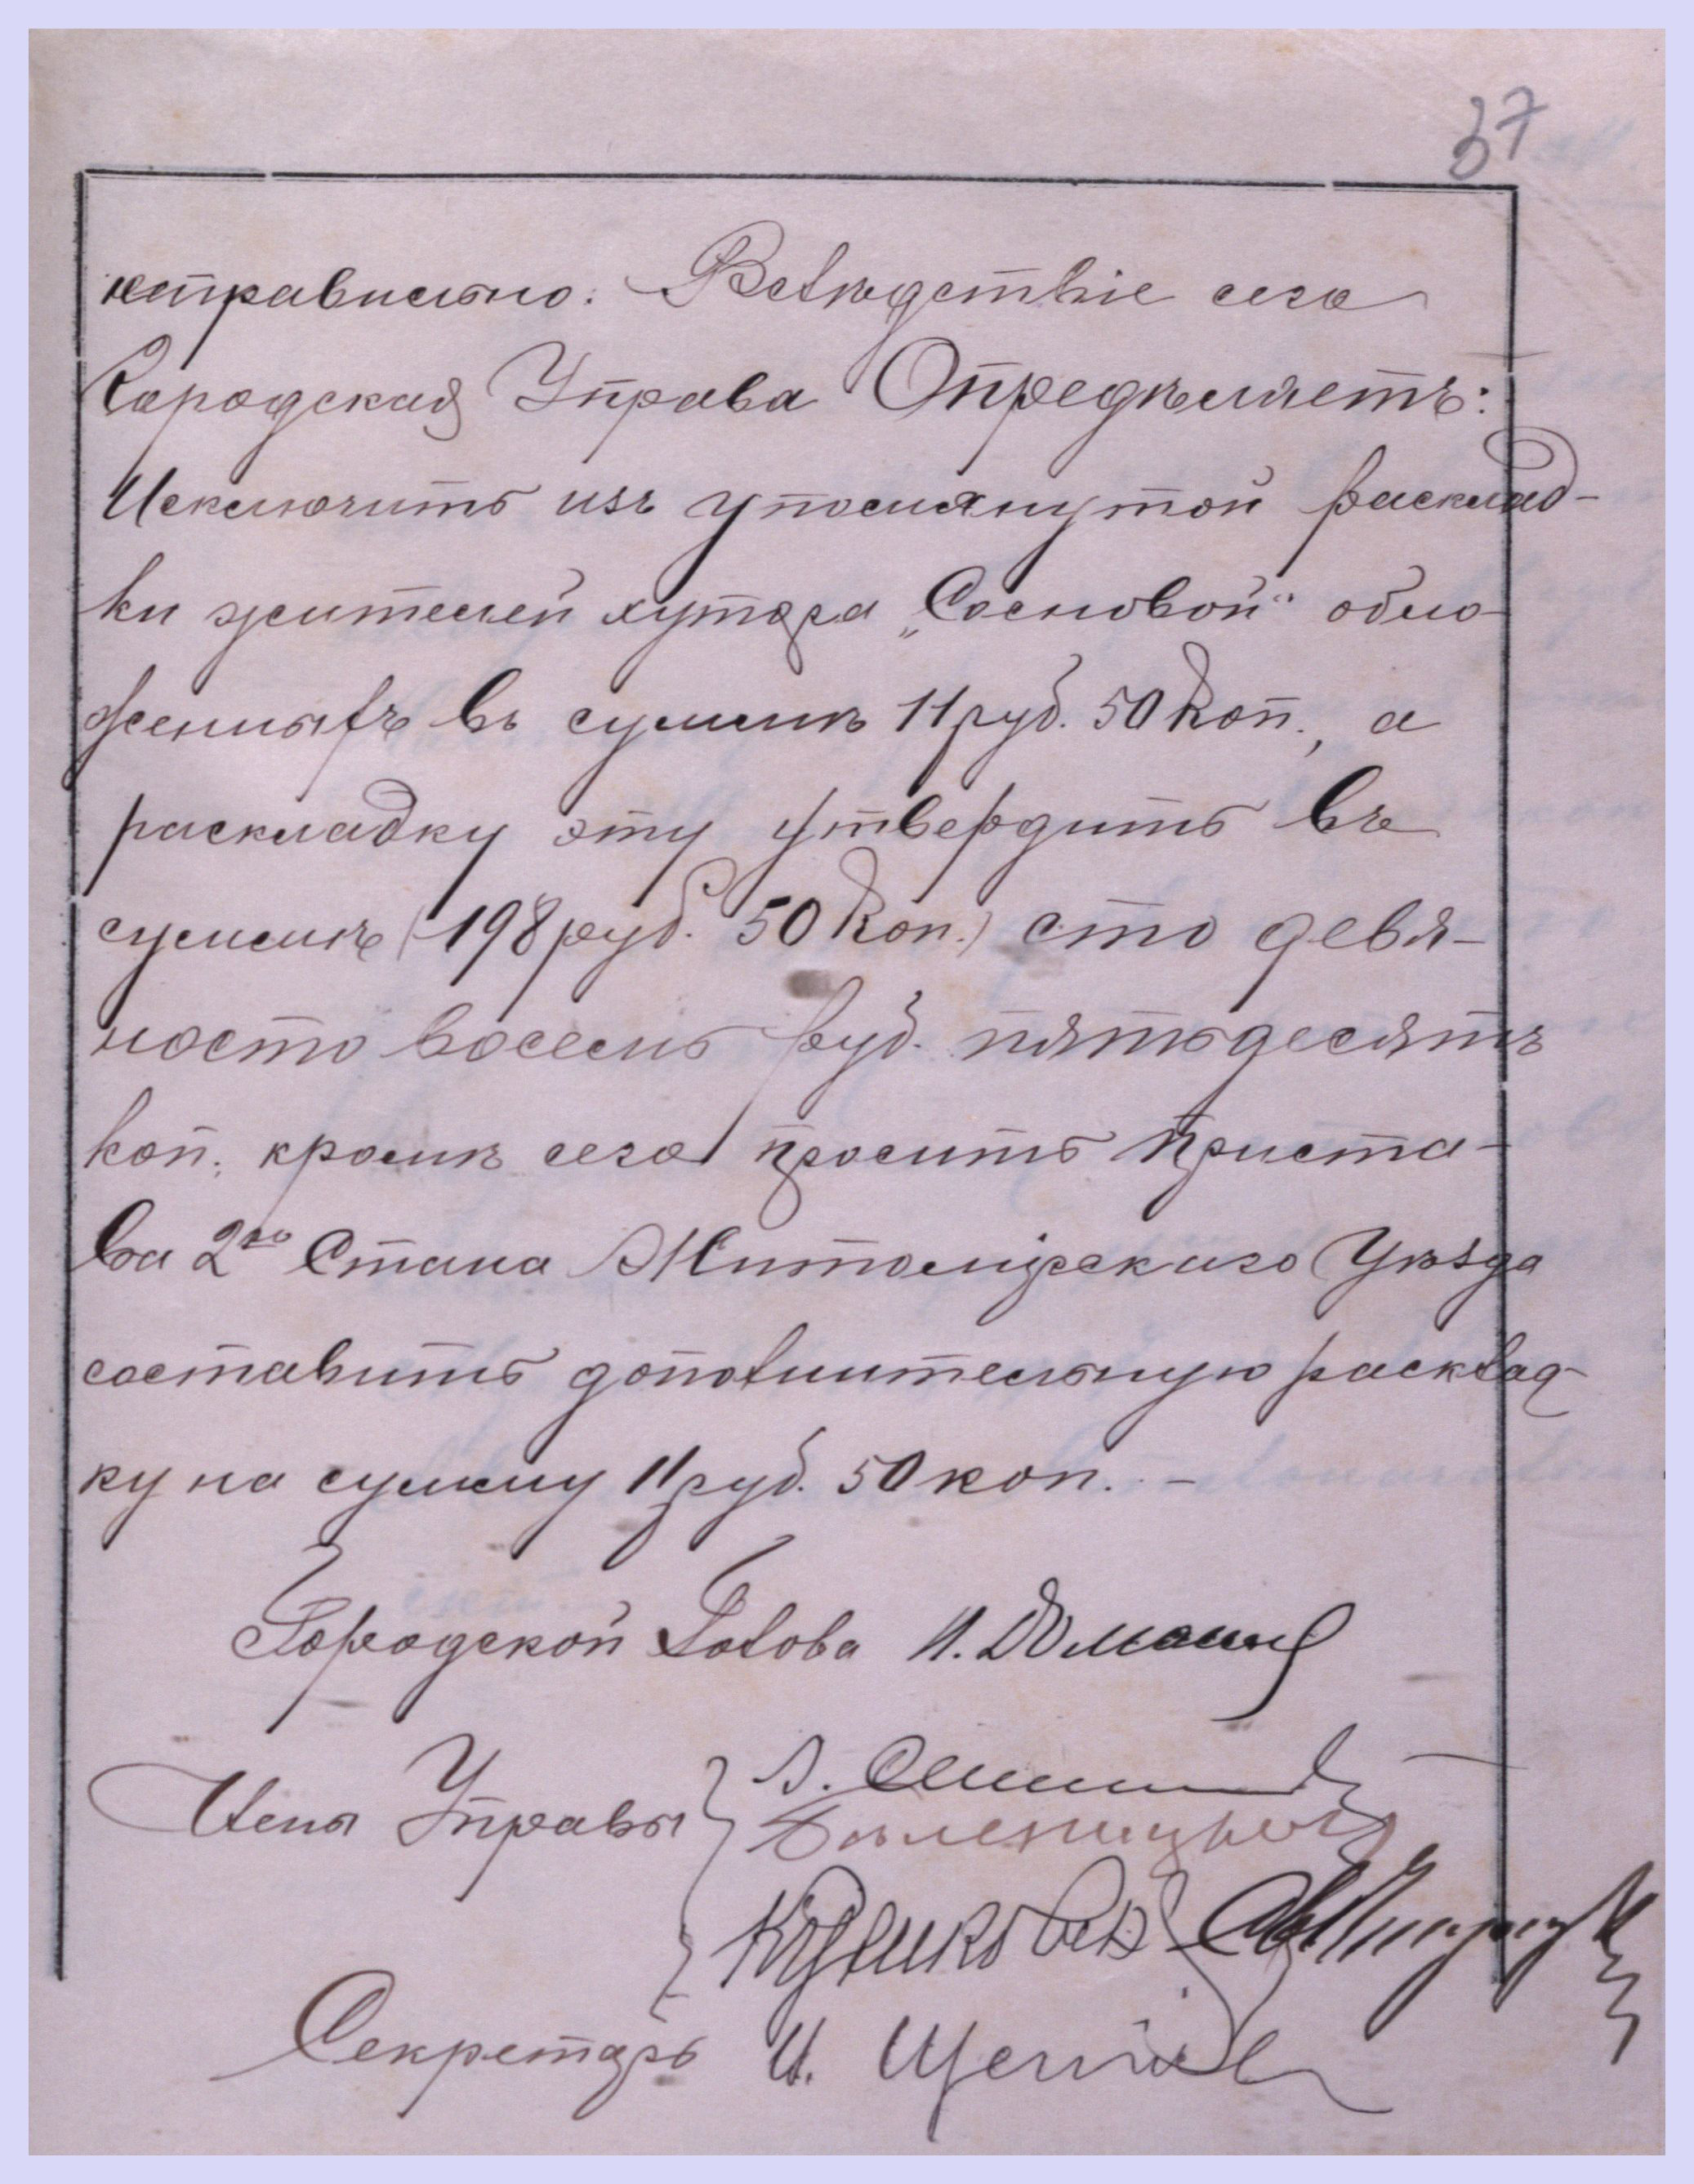 37
неправильно. Вслѣдствіе сего
Городская Управа Опредѣляетъ:
Исключить изъ упомянутой расклад-
ки жителей хутора „Сосновой“ обло
женныхъ въ суммѣ 11 руб. 50 коп., а
раскладку эту утвердить въ
суммѣ (198 руб. 50 коп.) сто девя-
носто восемь руб. пятьдесятъ
коп. кромѣ сего просить Приста-
ва 2го Стана Житомірскаго Уѣзда
составить дополнительную расклад-
ку на сумму 11 руб. 50 коп. -
Городской Голова И. Домани
Члены Управы
Секретарь И.